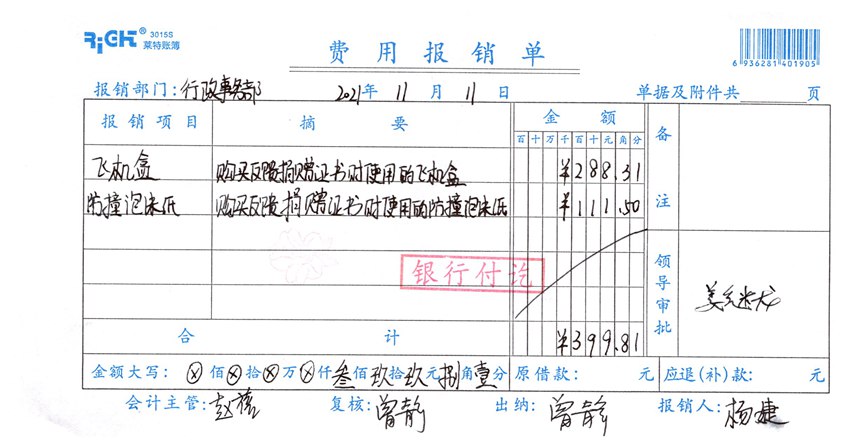 RiCH® 3015S
莱特账簿
费用报销单
6 936281 401905
报销部门：行政事务部 2021年 11月 11日 单据及附件共 页
报销项目 摘要 金额 备注
百十万千百十元角分
飞机盒 购买反馈捐赠证书时使用的飞机盒 ¥288.31
防撞泡沫纸 购买反馈捐赠证书时使用的防撞泡沫纸 ¥111.50
银行付讫
领导审批
合计 ¥399.81
金额大写：ⓧ佰ⓧ拾ⓧ万ⓧ仟叁佰玖拾玖元捌角壹分 原借款： 元 应退(补)款： 元
会计主管：赵 复核：曾静 出纳：曾静 报销人：杨捷